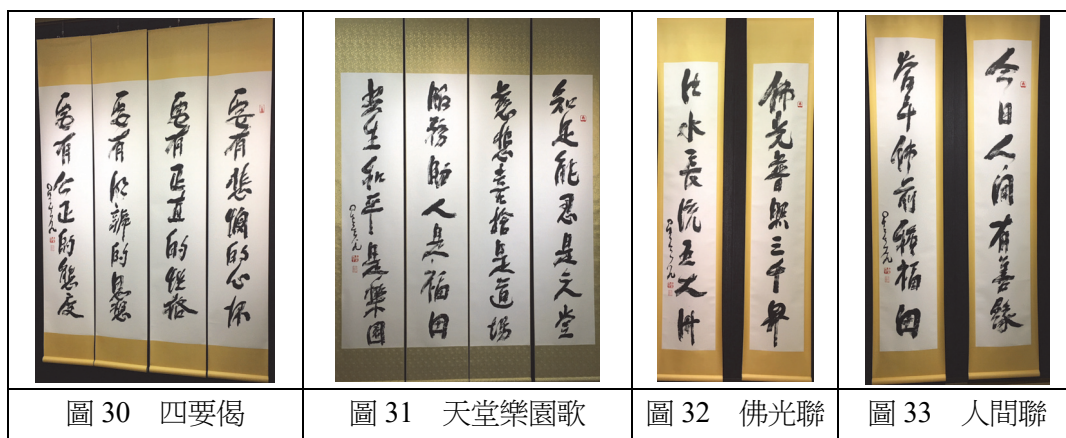 要有悲憫的心懷
要有正直的性格
要有明辨的思想
要有公正的態度
星雲
知足能忍是天堂
慈悲喜捨是道場
服務助人是福田
共生和平是樂園
星雲
佛光普照三千界
法水長流五大洲
星雲
今日人間有善緣
昔年佛前種福田
星雲
圖 30 四要偈
圖 31 天堂樂園歌
圖 32 佛光聯
圖 33 人間聯